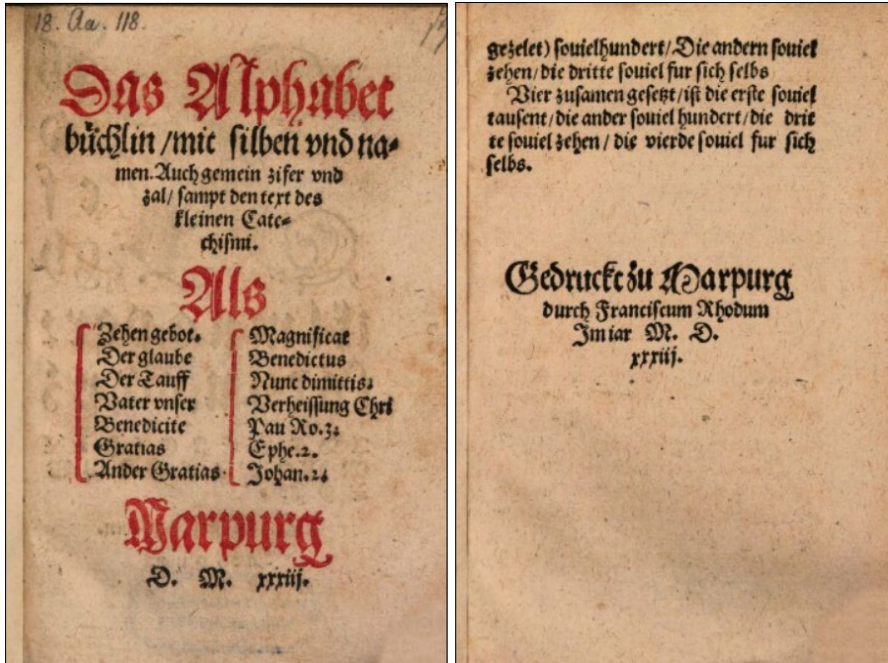 18. Aa. 118.
Das Alphabet
büchlin / mit silben vnd na⸗
men. Auch gemein zifer vnd
zal / sampt den text des
kleinen Cate⸗
chismi.
Als
Zehen gebot.
Der glaube
Der Tauff
Vater vnser
Benedicite
Gratias
Ander Gratias
Magnificat
Benedictus
Nunc dimittis.
Verheissung Chri
Pau Ro. 3.
Ephe. 2.
Johan. 2.
Marpurg
D. M. xxxiij.
gezelet) souielhundert / Die andern souiel
zehen / die dritte souiel fur sich selbs
Vier zusamen gesetzt / ist die erste souiel
tausent / die ander souiel hundert / die drit
te souiel zehen / die vierde souiel fur sich
selbs.
Gedruckt zu Marpurg
durch Franciscum Rhodum
Im iar M. D.
xxxiij.